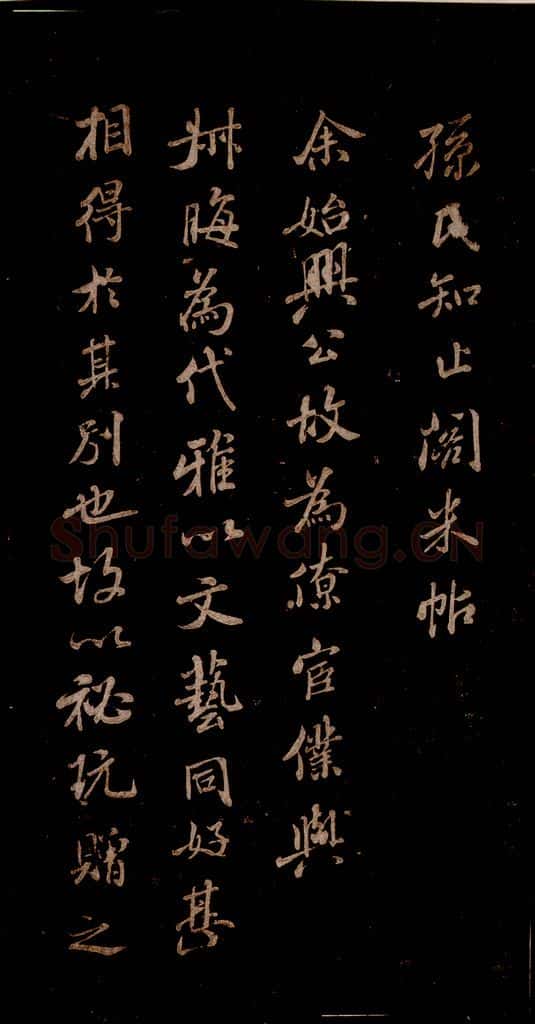 孫氏知止閣米帖
余始興公故為僚宦僕與
叔晦為代雅以文藝同好甚
相得於其別也故以祕玩贈之
Shufawang.CN